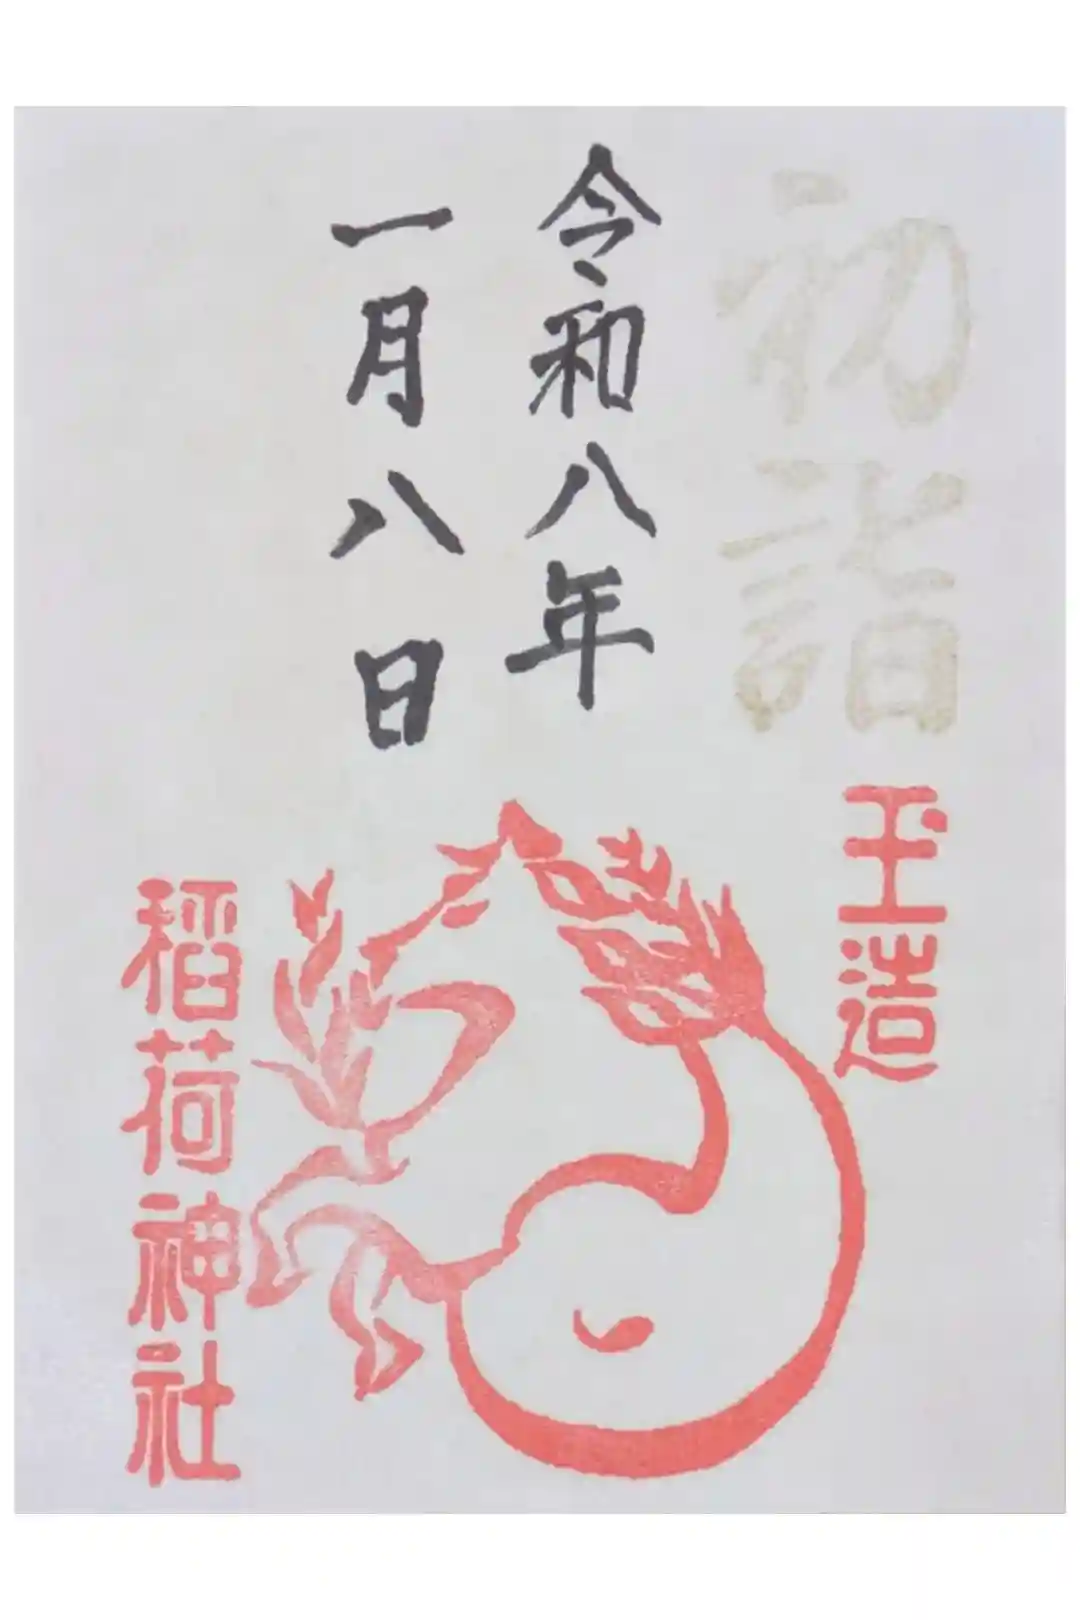 初詣
玉造
令和八年
一月八日
稻荷神社